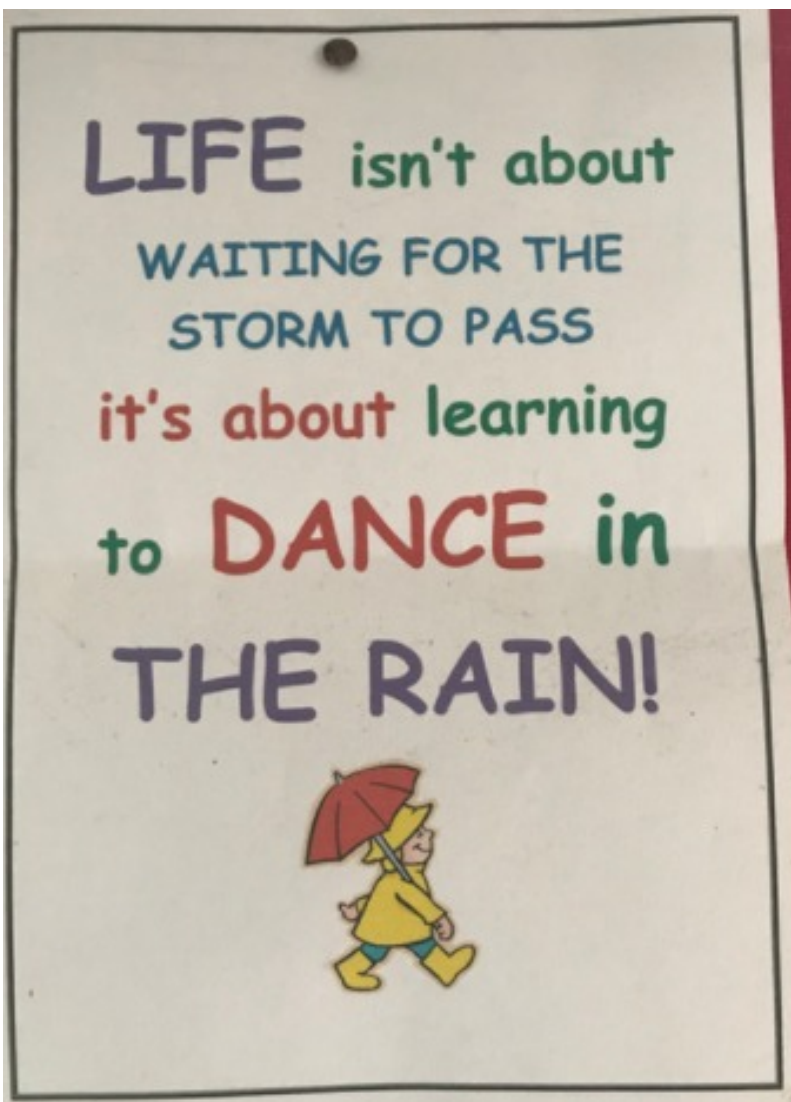 LIFE isn't about
WAITING FOR THE
STORM TO PASS
it's about learning
to DANCE in
THE RAIN!